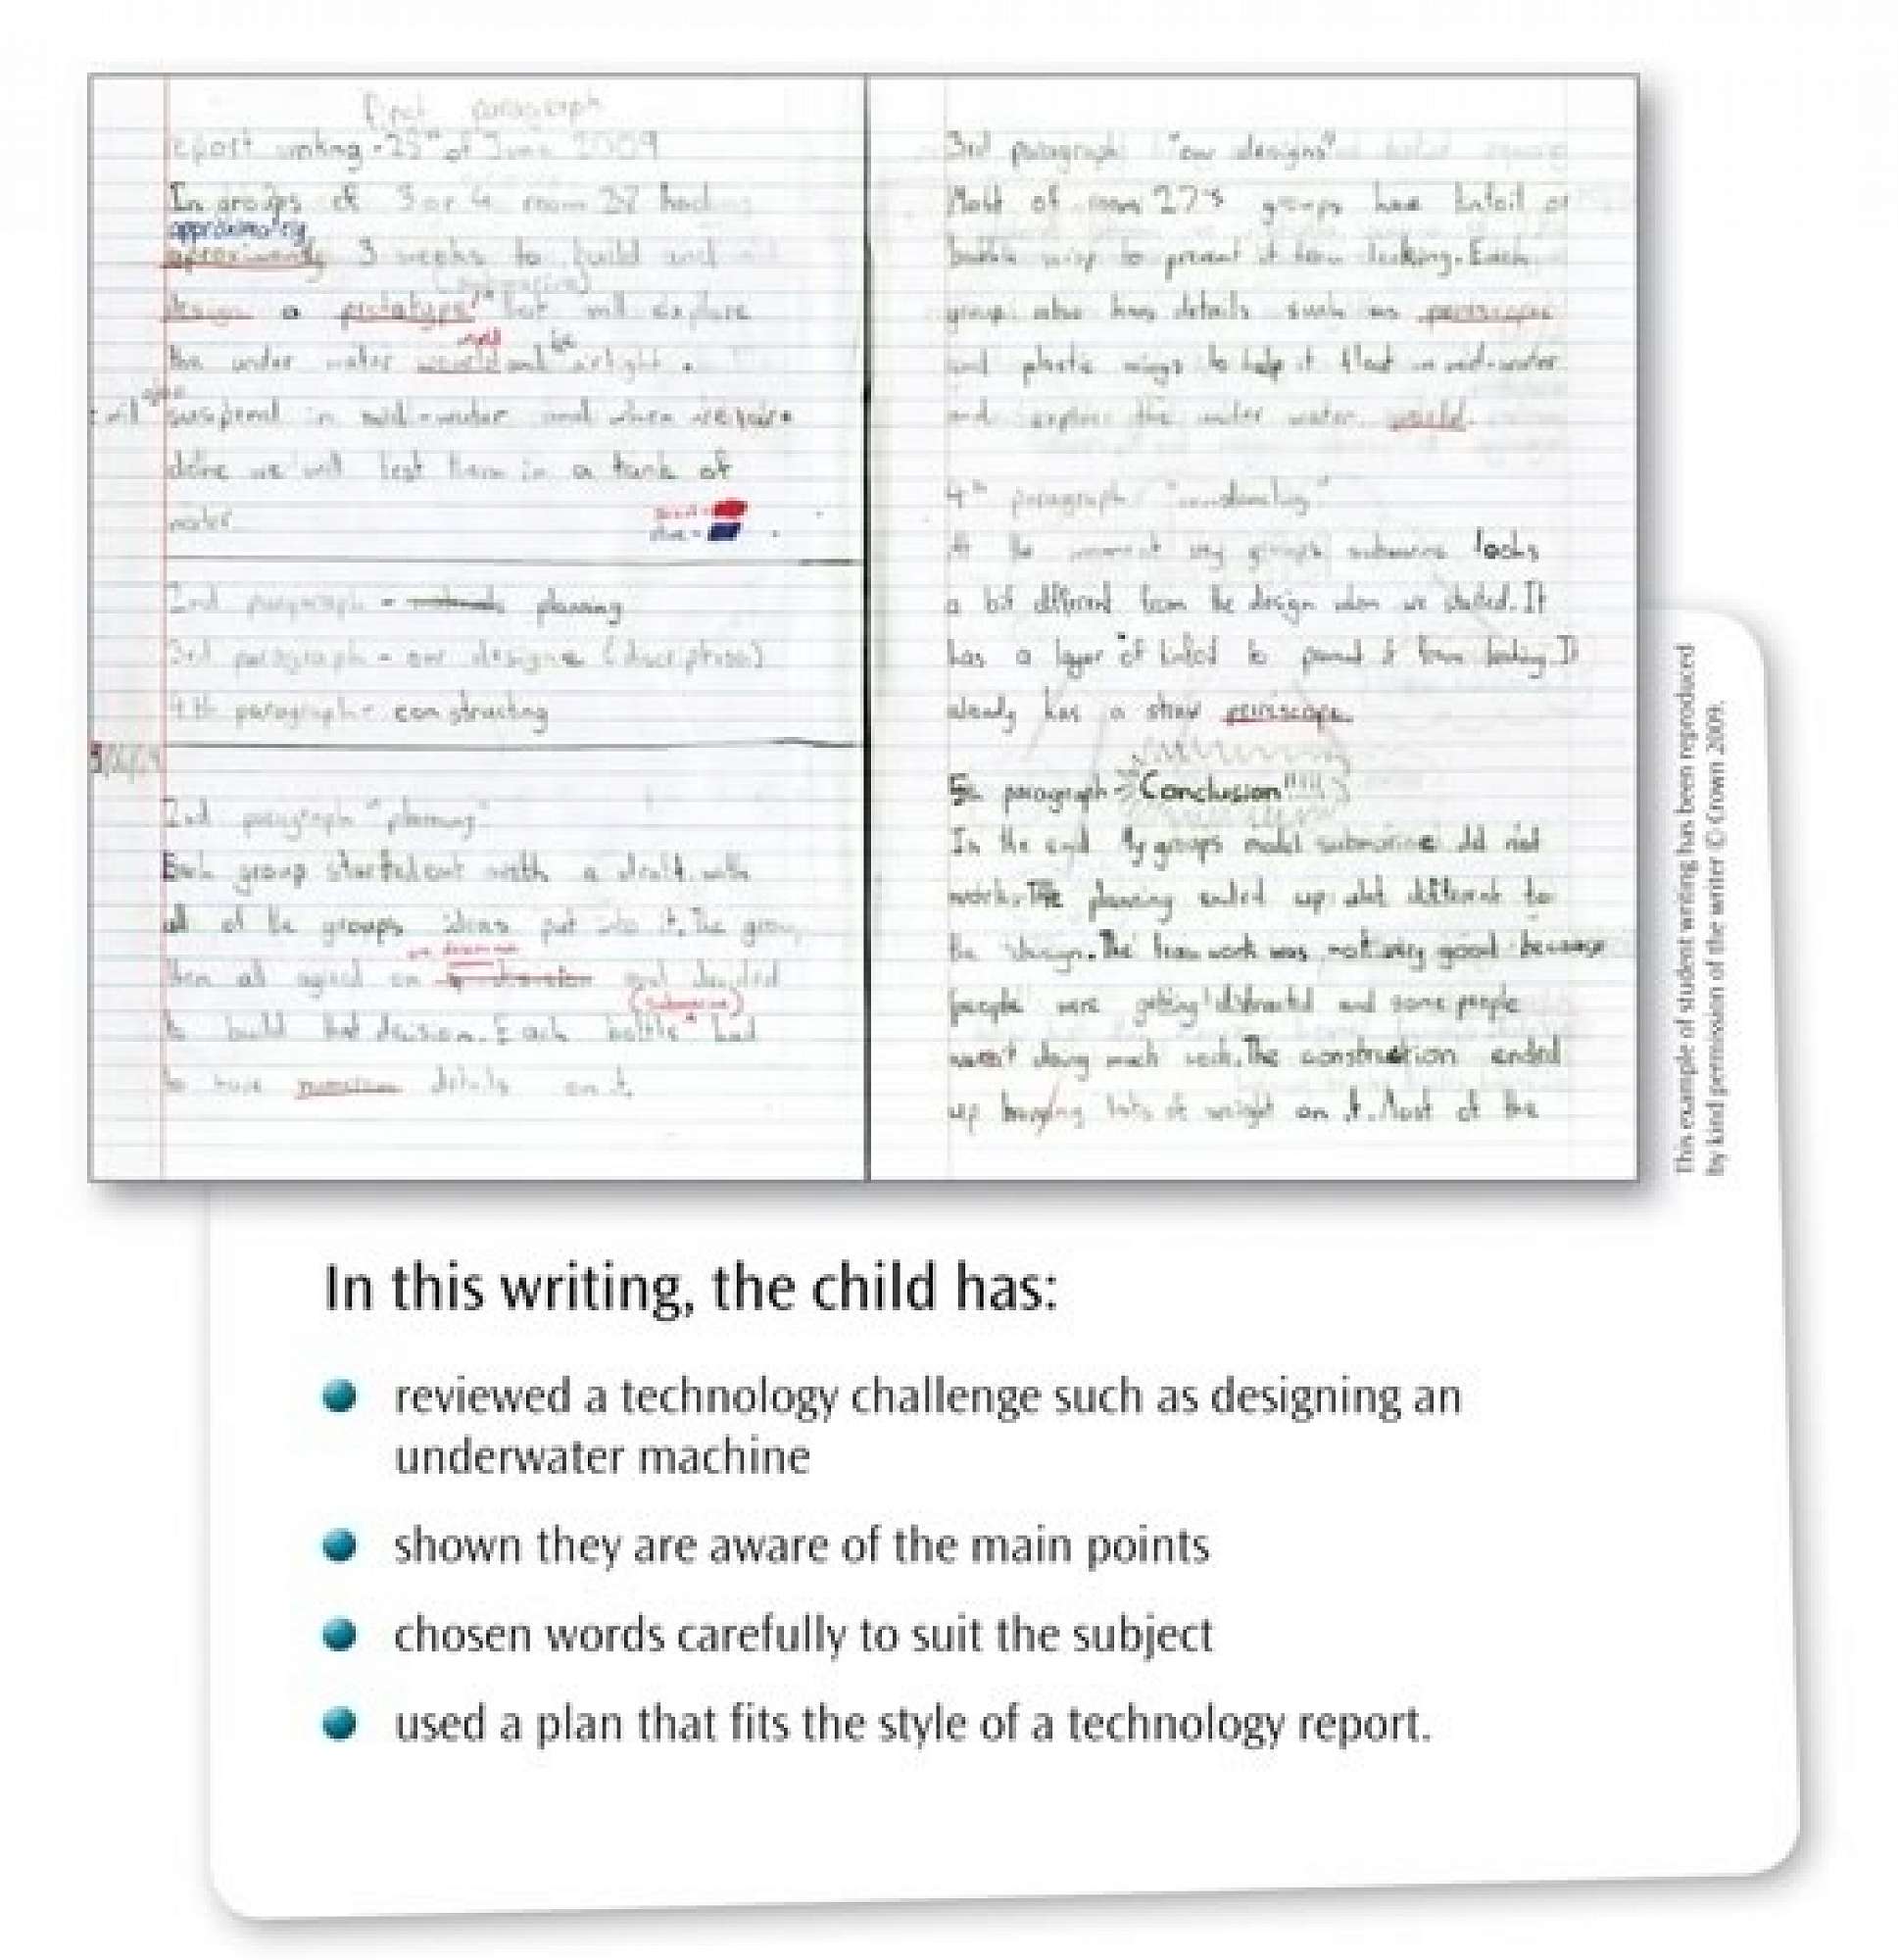 First paragraph
eport writing - 25th of June 2009
In groups of 3 or 4 room 27 had
approximately
3 weeks to build and
(submarine)
design a prototype that will explore
will be
the under water world and airtight.
will also suspend in mid-water and when we're
done we will test them in a tank of
water
2nd paragraph - planning
3rd paragraph - our designs (discription)
4th paragraph - constructing
2nd paragraph "planning"
Each group started out with a draft with
all of the groups ideas put into it. The group
then all agreed on and decided
(submarine)
to build that decision. Each bottle had
to have details on it.
3rd paragraph "our designs"
Most of room 27's groups have
bubble wrap to prevent it from leaking. Each
group also has details such as
and plastic wings to help it float in mid-water
and explore the under water world.
4th paragraph "constructing"
At the moment my groups submarine looks
a bit different from the design when we started. It
has a layer of to prevent it from leaking. It
already has a straw periscope.
5th paragraph - Conclusion"!!!!
In the end My groups model submarine did not
work. The planning ended up alot different to
the design. The team work was not very good because
people were getting distracted and some people
wasn't doing much work. The construction ended
up lots of weight on it. Most of the
This example of student writing has been reproduced
by kind permission of the writer © Crown 2009.
In this writing, the child has:
reviewed a technology challenge such as designing an
underwater machine
shown they are aware of the main points
chosen words carefully to suit the subject
used a plan that fits the style of a technology report.